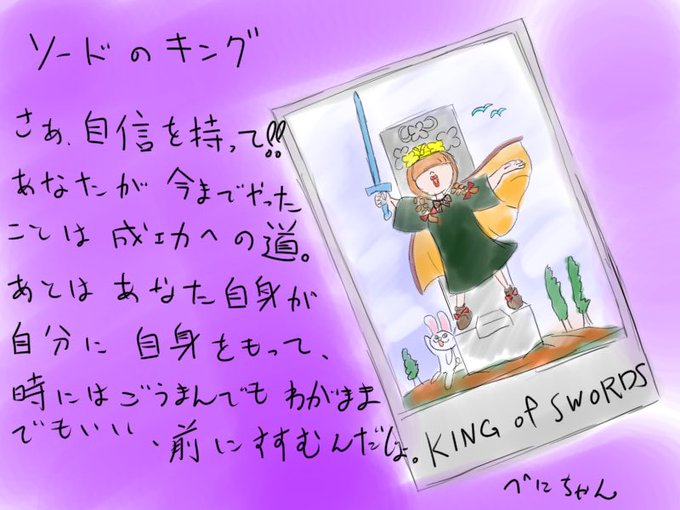 ソードのキング
さあ、自信を持って!!
あなたが今までやった
ことは成功への道。
あとはあなた自身が
自分に自身をもって、
時にはごうまんでもわがまま
でもいい、前にすすむんだじょ。
KING of SWORDS
べにちゃん